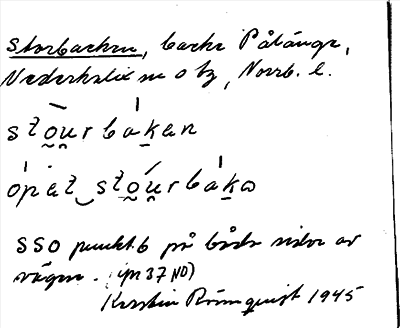 Storbacken, backe Pålänge,
Nederkalix sn o bg, Norrb. l.
stōu̯rbak̠an
ópat‿stóu̯rbak̠o
SSO punkt 6 på båda sidor av
vägen. (pr 37 NO)
Kerstin Rönnquist 1945